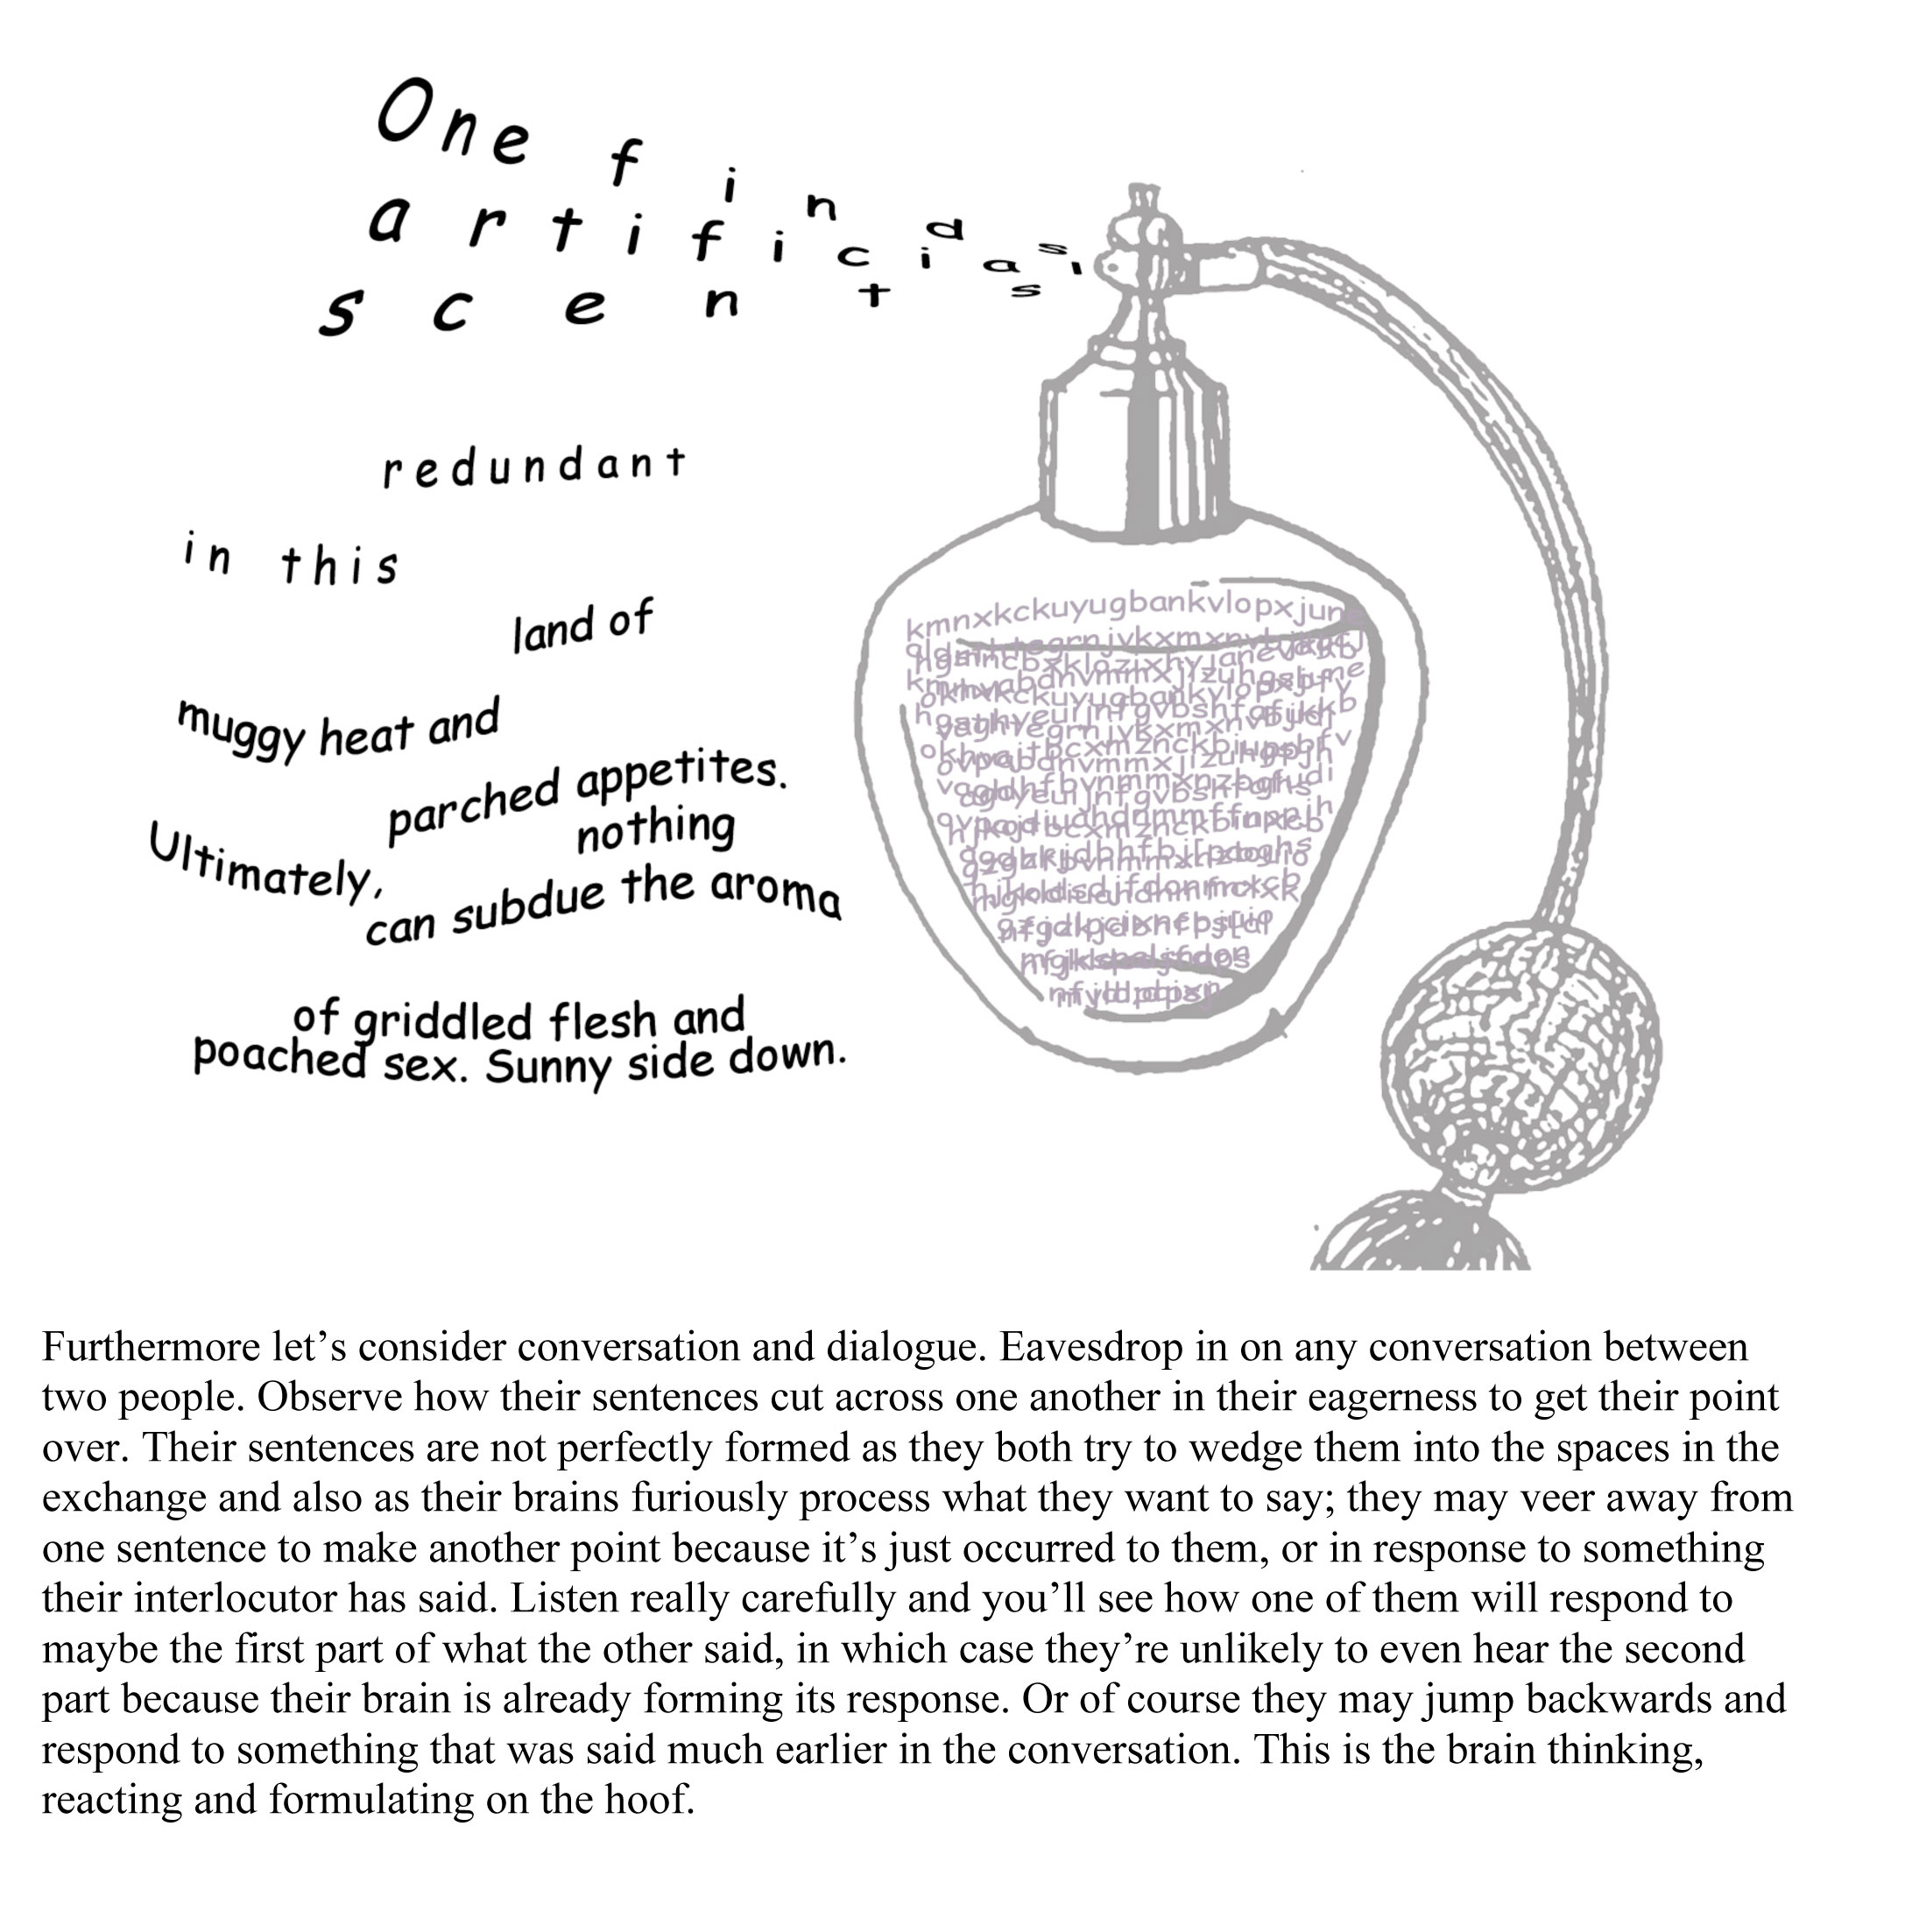 One finds
artificial
scents
redundant
in this
land of
muggy heat and
parched appetites.
Ultimately, nothing
can subdue the aroma
of griddled flesh and
poached sex. Sunny side down.
Furthermore let’s consider conversation and dialogue. Eavesdrop in on any conversation between
two people. Observe how their sentences cut across one another in their eagerness to get their point
over. Their sentences are not perfectly formed as they both try to wedge them into the spaces in the
exchange and also as their brains furiously process what they want to say; they may veer away from
one sentence to make another point because it’s just occurred to them, or in response to something
their interlocutor has said. Listen really carefully and you’ll see how one of them will respond to
maybe the first part of what the other said, in which case they’re unlikely to even hear the second
part because their brain is already forming its response. Or of course they may jump backwards and
respond to something that was said much earlier in the conversation. This is the brain thinking,
reacting and formulating on the hoof.